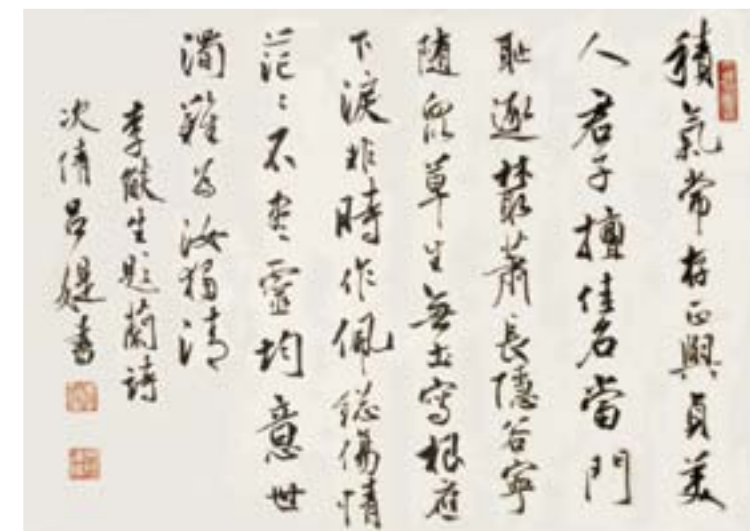 積氣常存正與貞美
人君子擅佳名當門
恥逐叢蕭長隱谷寧
隨眾草生無土寫根應
下淚非時作佩總傷情
茫〻不盡靈均意世
濁難為汝獨清
李生題蘭詩
次倩呂媞書